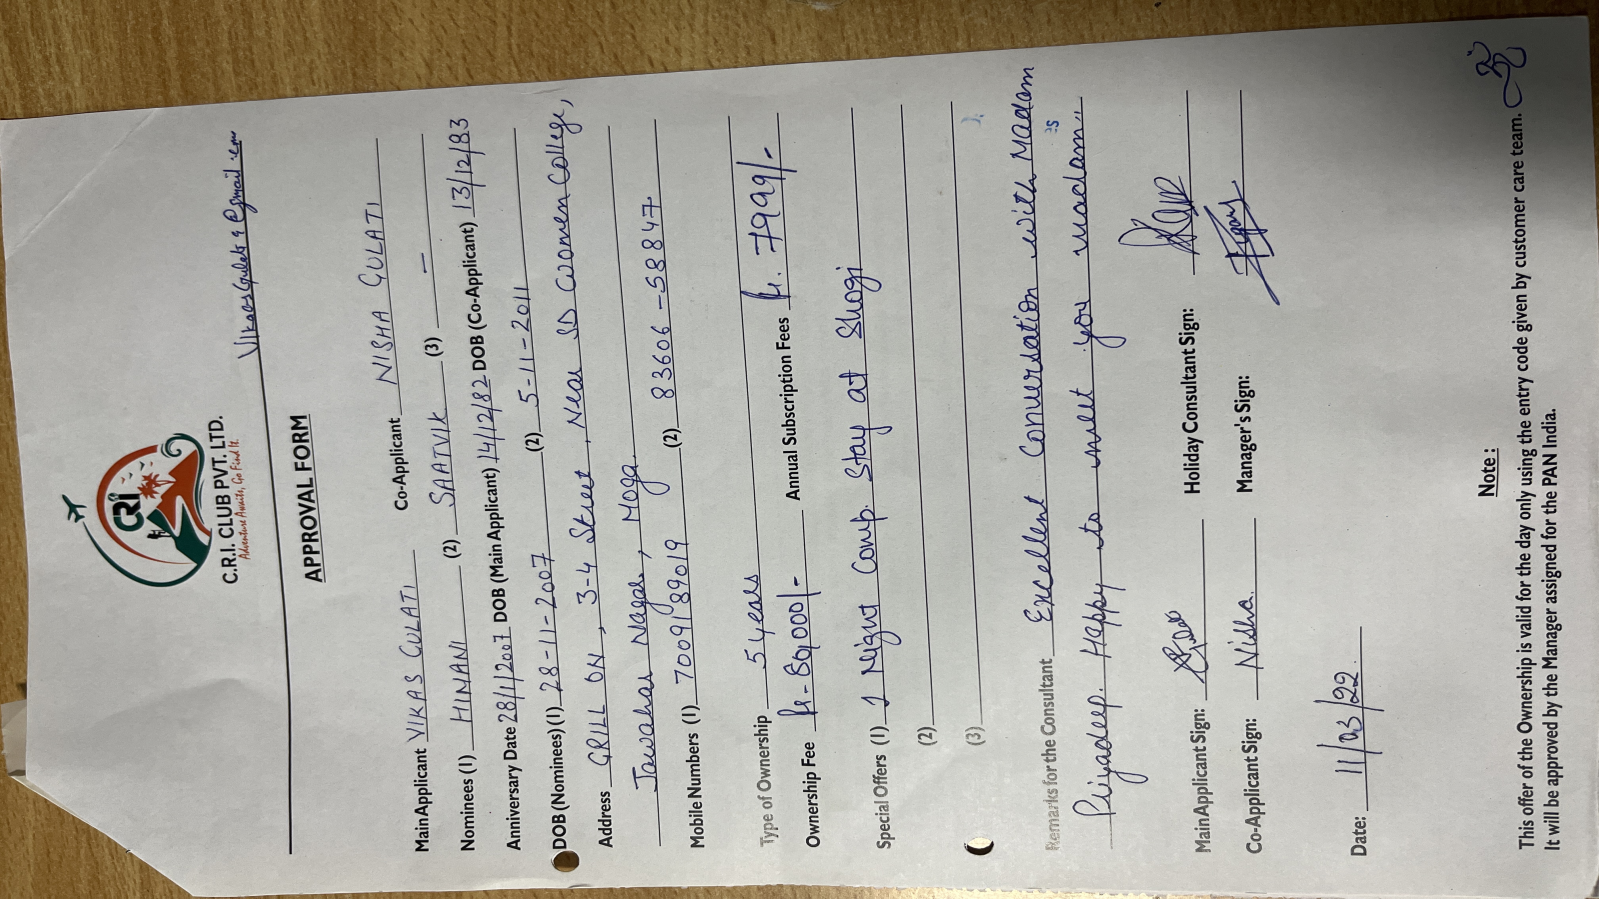 CRI
C.R.I. CLUB PVT. LTD.
Adventure Awaits, Go Find It.
APPROVAL FORM
Main Applicant VIKAS GULATI Co-Applicant NISHA GULATI
Nominees (1) HIMANI (2) SAATVIK (3) —
Anniversary Date 28/1/2007 DOB (Main Applicant) 14/12/82 DOB (Co-Applicant) 13/12/83
DOB (Nominees) (1) 28-11-2007 (2) 5-11-2011
Address GRILL ON, 3-4 Street, Near SD Women College,
Jawahar Nagar, Moga.
Mobile Numbers (1) 70091 89019 (2) 83606-58847
Type of Ownership 5 years
Ownership Fee Annual Subscription Fees 7999/-
Special Offers (1) 1 Night Comp. Stay at Shogi
(2)
(3)
Remarks for the Consultant Excellent Conversation with Madam
Priyadeep. Happy to meet you madam..
Main Applicant Sign: Holiday Consultant Sign:
Co-Applicant Sign: Nisha. Manager's Sign:
Date: 11/03/22.
Note :
This offer of the Ownership is valid for the day only using the entry code given by customer care team.
It will be approved by the Manager assigned for the PAN India.